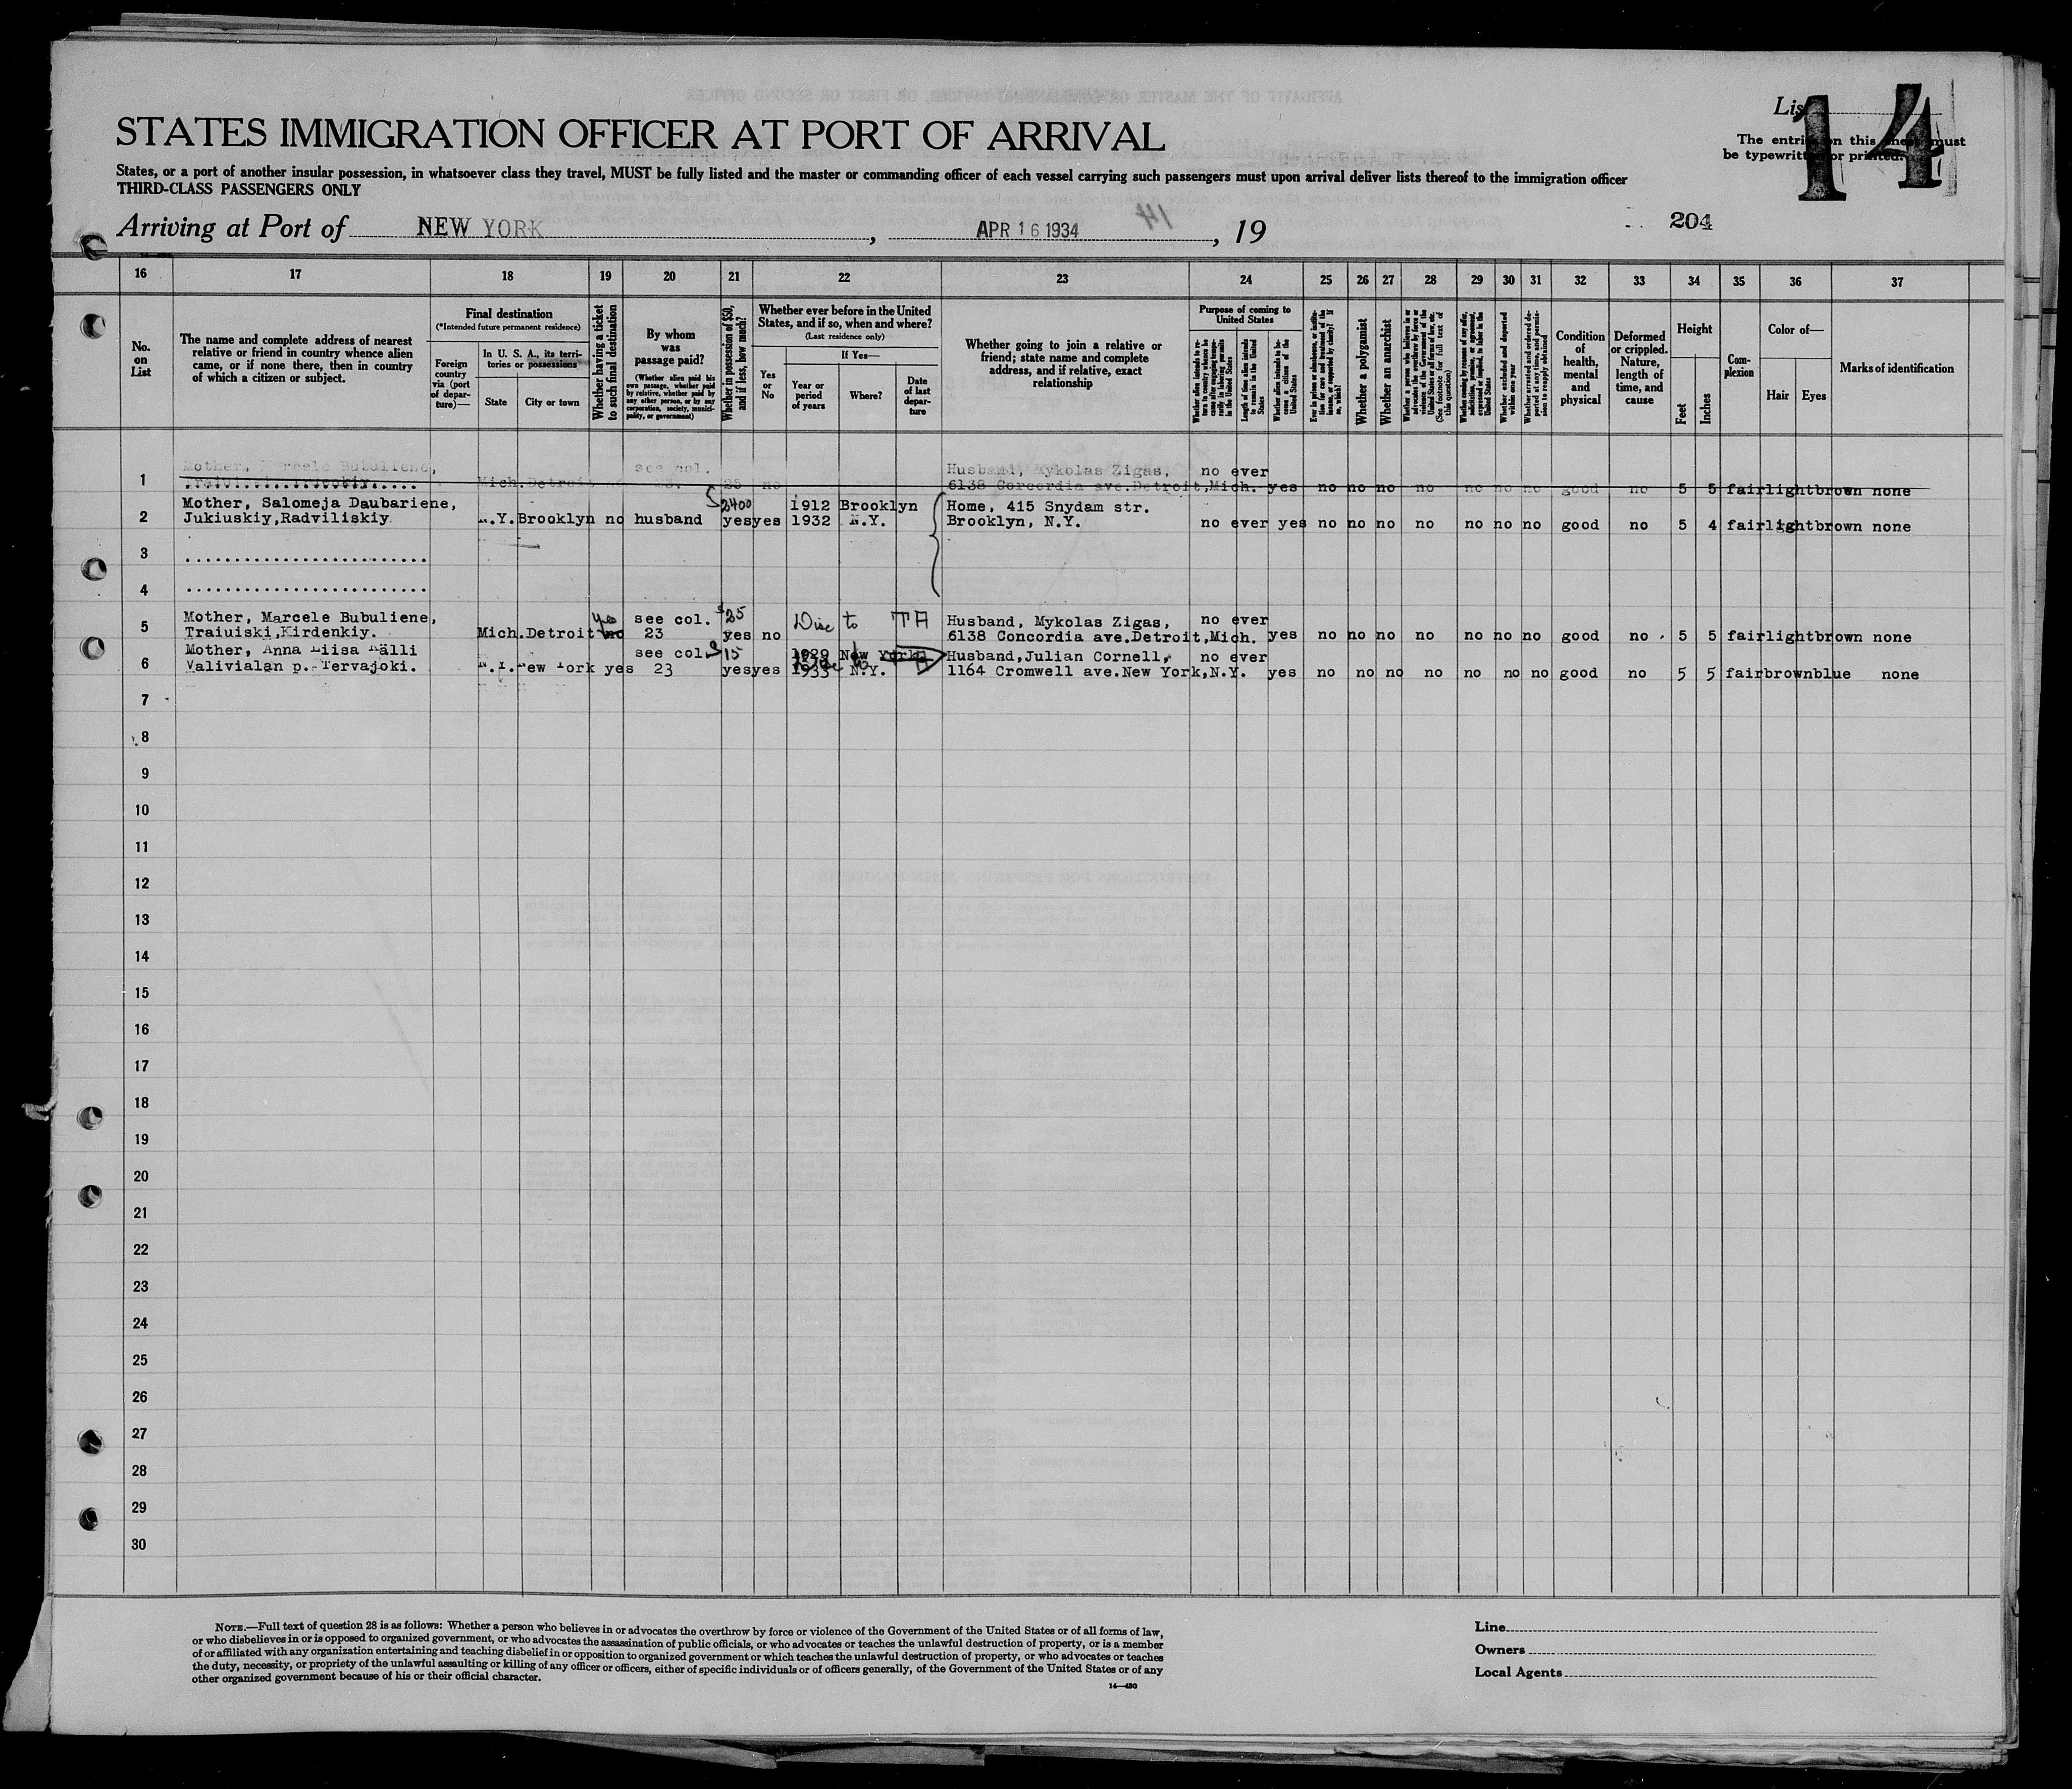 List
14
The entries on this sheet must
be typewritten or printed.
STATES IMMIGRATION OFFICER AT PORT OF ARRIVAL
States, or a port of another insular possession, in whatsoever class they travel, MUST be fully listed and the master or commanding officer of each vessel carrying such passengers must upon arrival deliver lists thereof to the immigration officer
THIRD-CLASS PASSENGERS ONLY
Arriving at Port of NEW YORK, APR 16 1934, 19
14
204
16 17 18 19 20 21 22 23 24 25 26 27 28 29 30 31 32 33 34 35 36 37
No. on List
The name and complete address of nearest
relative or friend in country whence alien
came, or if none there, then in country
of which a citizen or subject.
Final destination
(*Intended future permanent residence)
Foreign country via (port of departure)—
In U. S. A., its territories or possessions
State
City or town
Whether having a ticket to such final destination
By whom was passage paid?
(Whether alien paid his own passage, whether paid by relative, whether paid by any other person, or by any corporation, society, municipality, or government)
Whether in possession of $50, and if less, how much?
Whether ever before in the United States, and if so, when and where?
(Last residence only)
Yes or No
If Yes—
Year or period of years
Where?
Date of last departure
Whether going to join a relative or
friend; state name and complete
address, and if relative, exact
relationship
Purpose of coming to United States
Length of time alien intends to remain in the United States
Whether alien intends to become a citizen of the United States
Whether a polygamist
Whether an anarchist
(See footnote for full text of this question)
Whether excluded and deported within one year
Condition of health, mental and physical
Deformed or crippled. Nature, length of time, and cause
Height
Feet
Inches
Complexion
Color of—
Hair
Eyes
Marks of identification
1 Mother, Marcele Bubuliene, see col. Husband, Mykolas Zigas, no ever
Mich. Detroit 23. 25 no 6138 Concordia ave.Detroit,Mich. yes no no no no no no no good no 5 5 fair light brown none
Mother, Salomeja Daubariene, $2400 1912 Brooklyn Home, 415 Snydam str.
2 Jukiuskiy,Radviliskiy N.Y. Brooklyn no husband yes yes 1932 N.Y. Brooklyn, N.Y. no ever yes no no no no no no no good no 5 4 fair light brown none
3
4
Mother, Marcele Bubuliene, yes see col. $25 Disc to TA Husband, Mykolas Zigas, no ever
5 Traiuiski,Kirdenkiy. Mich. Detroit no 23 yes no 6138 Concordia ave.Detroit,Mich. yes no no no no no no no good no 5 5 fair light brown none
Mother, Anna Liisa Nälli see col. $15 1929 New York Husband,Julian Cornell, no ever
6 Valivialan p. Tervajoki. N.Y. New York yes 23 yes yes 1933 N.Y. 1164 Cromwell ave.New York,N.Y. yes no no no no no no no good no 5 5 fair brown blue none
7
8
9
10
11
12
13
14
15
16
17
18
19
20
21
22
23
24
25
26
27
28
29
30
NOTE.—Full text of question 28 is as follows: Whether a person who believes in or advocates the overthrow by force or violence of the Government of the United States or of all forms of law,
or who disbelieves in or is opposed to organized government, or who advocates the assassination of public officials, or who advocates or teaches the unlawful destruction of property, or is a member
of or affiliated with any organization entertaining and teaching disbelief in or opposition to organized government or which teaches the unlawful destruction of property, or who advocates or teaches
the duty, necessity, or propriety of the unlawful assaulting or killing of any officer or officers, either of specific individuals or of officers generally, of the Government of the United States or of any
other organized government because of his or their official character.
14—430
Line
Owners
Local Agents